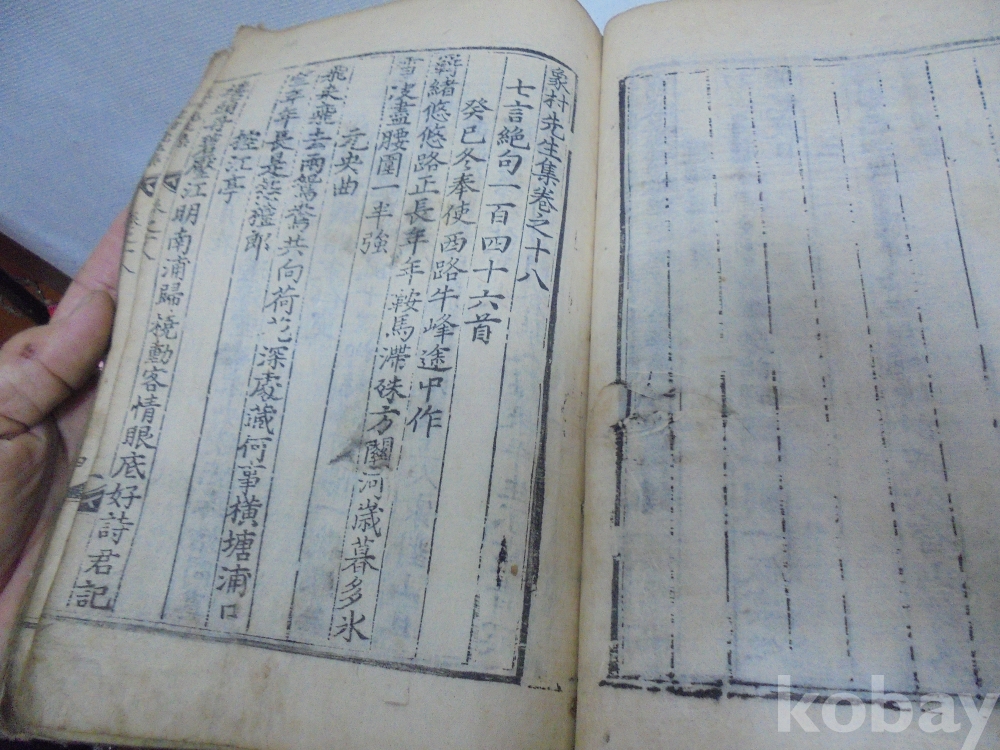 象村先生集卷之十八
七言絶句一百四十六首
癸巳冬奉使西路牛峰途中作
羇緖悠悠路正長年年鞍馬滯殊方關河歲暮多氷
雪凌盡腰圍一半強
元央曲
飛來飛去兩鴛鴦共向荷花深處藏何事橫塘浦口
年年長是怨檀郎
控江亭
江明南浦歸橈動客情眼底好詩君記
kobay